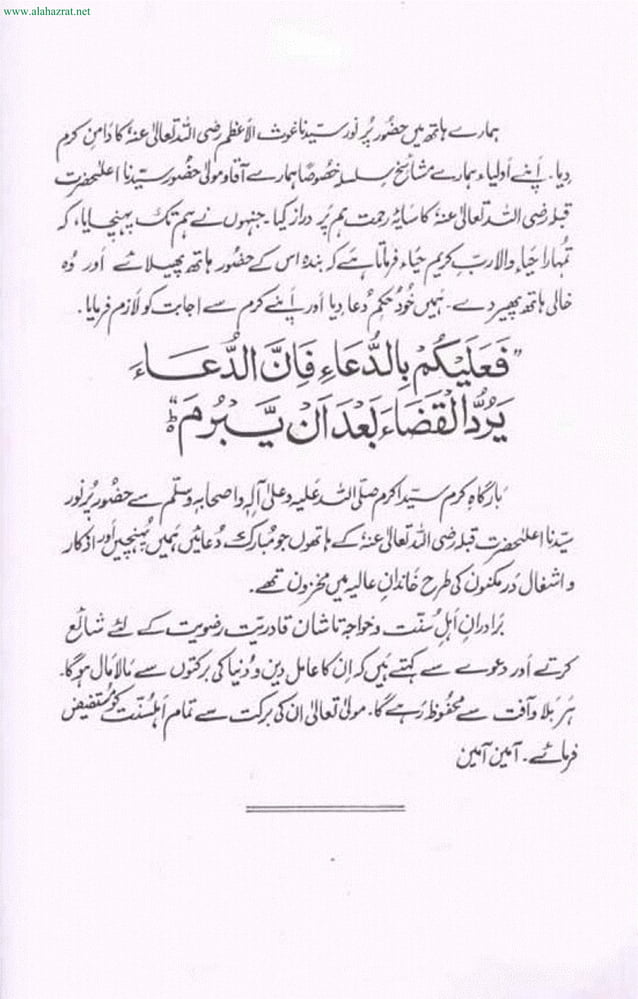 www.alahazrat.net
ہمارے ہاتھ میں حضور پُر نور سیّدنا غوث الاعظم رضی اللہ تعالیٰ عنہٗ کا دامن کرم
دیا۔ اپنے اَولیاء ہمارے مشائخ سلسلہ خصُوصًا ہمارے آقا و مولیٰ حضُور سیّدنا اعلیٰحضرت
قبلہ رضی اللہ تعالیٰ عنہٗ کا سایۂ رحمت ہم پر دراز کیا۔ جنہوں نے ہم تک پہنچایا، کہ
تُمہارا حیَاء والا ربِّ کریم حیَاء فرماتا ہے کہ بندہ اس کے حضور ہاتھ پھیلائے اور وُہ
خالی ہاتھ پھیر دے۔ ہمیں خُود حُکمِ دُعا دیا اور اپنے کرم سے اجابت کو لازم فرمایا۔
”فَعَلَيْكُمْ بِالدُّعَاءِ فَاِنَّ الدُّعَاءَ
يَرُدُّ الْقَضَاءَ بَعْدَ اَنْ يَّبْرُمَ“ؕ
بارگاہِ کرم سیّد اکرم صلّی اللہ علیہ وعلیٰ آلہٖ واصحابہٖ وسلّم سے حضُور پُر نُور
سیّدنا اعلیٰحضرت قبلہ رضی اللہ تعالیٰ عنہٗ کے ہاتھوں جو مُبارک دُعائیں ہمیں پُہنچیں اور اذکار
و اشغال دُرِ مکنُوں کی طرح خاندانِ عالیہ میں مخزون تھے۔
برادرانِ اہلِ سُنّت و خواجہ تاشان قادریّت رضویت کے لئے شائع
کرتے اَور دعوے سے کہتے ہیں کہ اِن کا عامل دین و دُنیا کی برکتوں سے مالا مال ہوگا۔
ہَر بَلا و آفت سے محفُوظ رہے گا۔ مولیٰ تعالیٰ ان کی برکت سے تمام اَہلسُنّت کو مُستفیض
فرمائے۔ آمین آمین